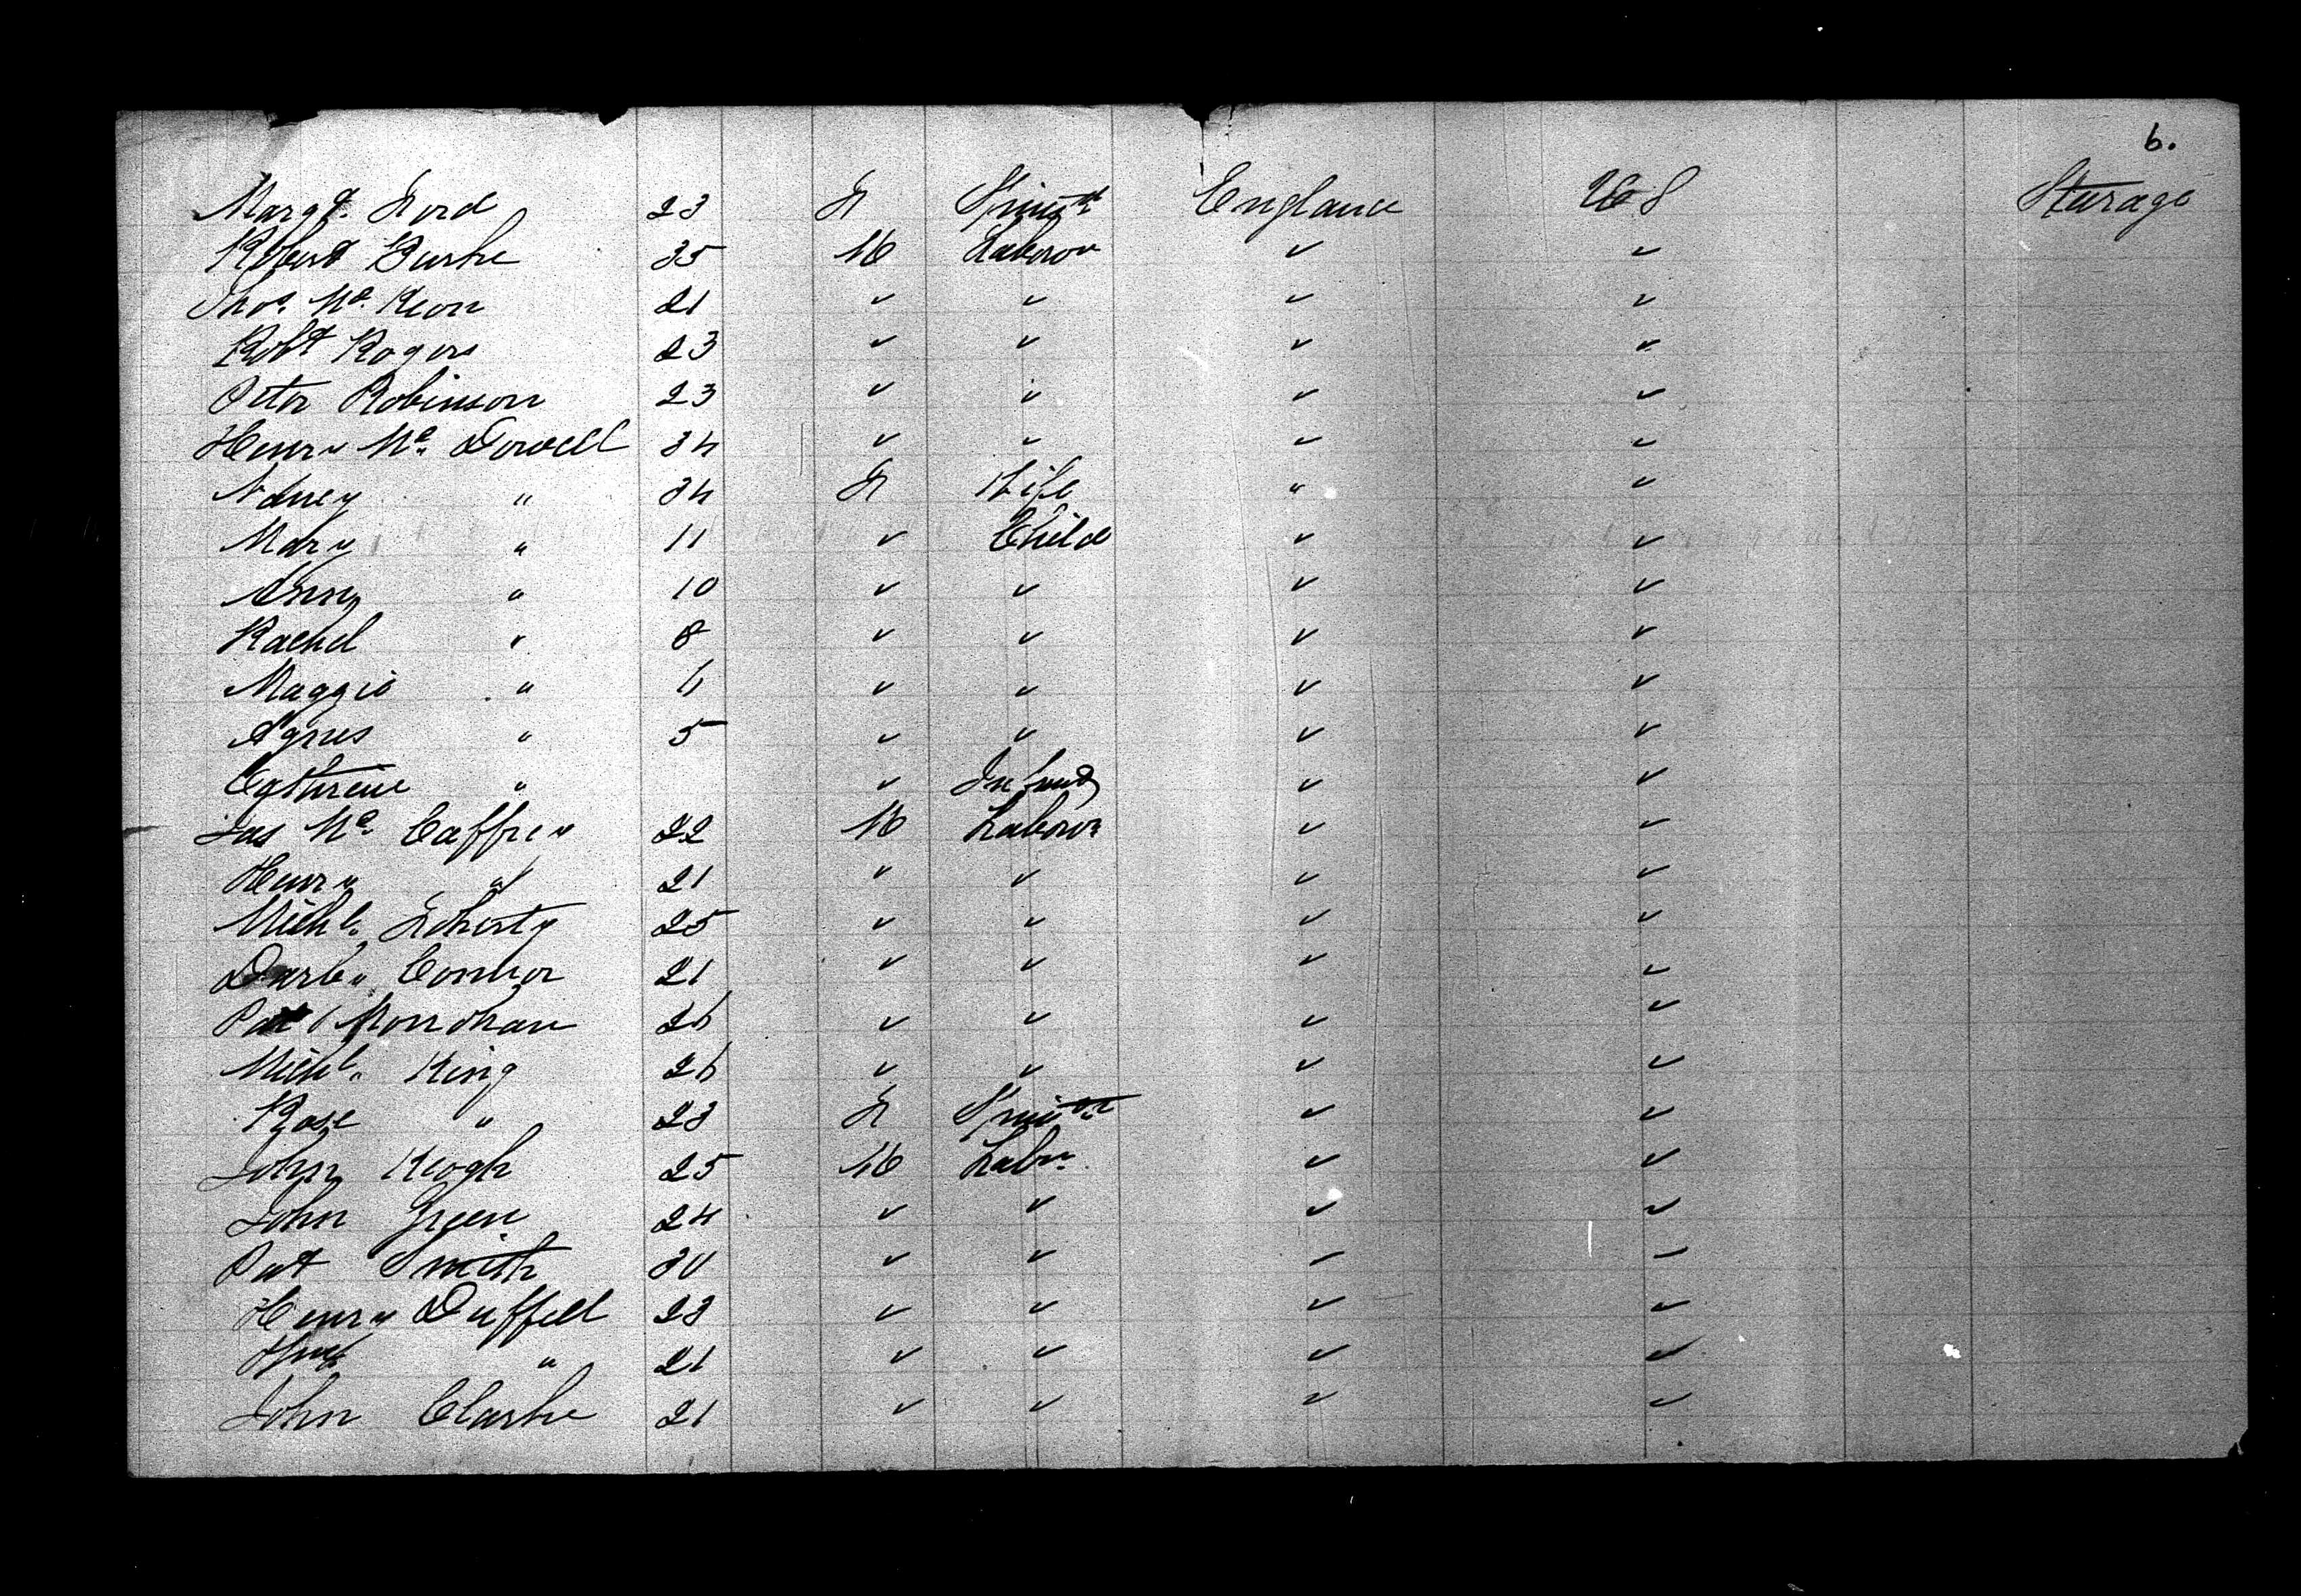 6.
Margt. Ford 23 F Spinstr England US Steerage
Robert Burke 35 M Labour " "
Thos. Mc. Keon 21 " " " "
Robt Rogers 23 " " " "
Peter Robinson 23 " " " "
Henry Mc. Dowell 34 " " " "
Nancy " 34 F Wife " "
Mary " 11 " Child " "
Anny " 10 " " " "
Rachel " 8 " " " "
Maggie " 6 " " " "
Agnes " 5 " " " "
Cathreine " " Infant " "
Jas Mc. Caffrey 22 M Labour " "
Henry " 21 " " " "
Michl. Doherty 25 " " " "
Darby Connor 21 " " " "
Pat Monohan 26 " " " "
Michl. King 26 " " " "
Rose " 23 F Spinstr " "
John Keogh 25 M Labr. " "
John Green 24 " " " "
Pat Smith 30 " " " "
Henry Duffell 23 " " " "
" 21 " " " "
John Clarke 21 " " " "